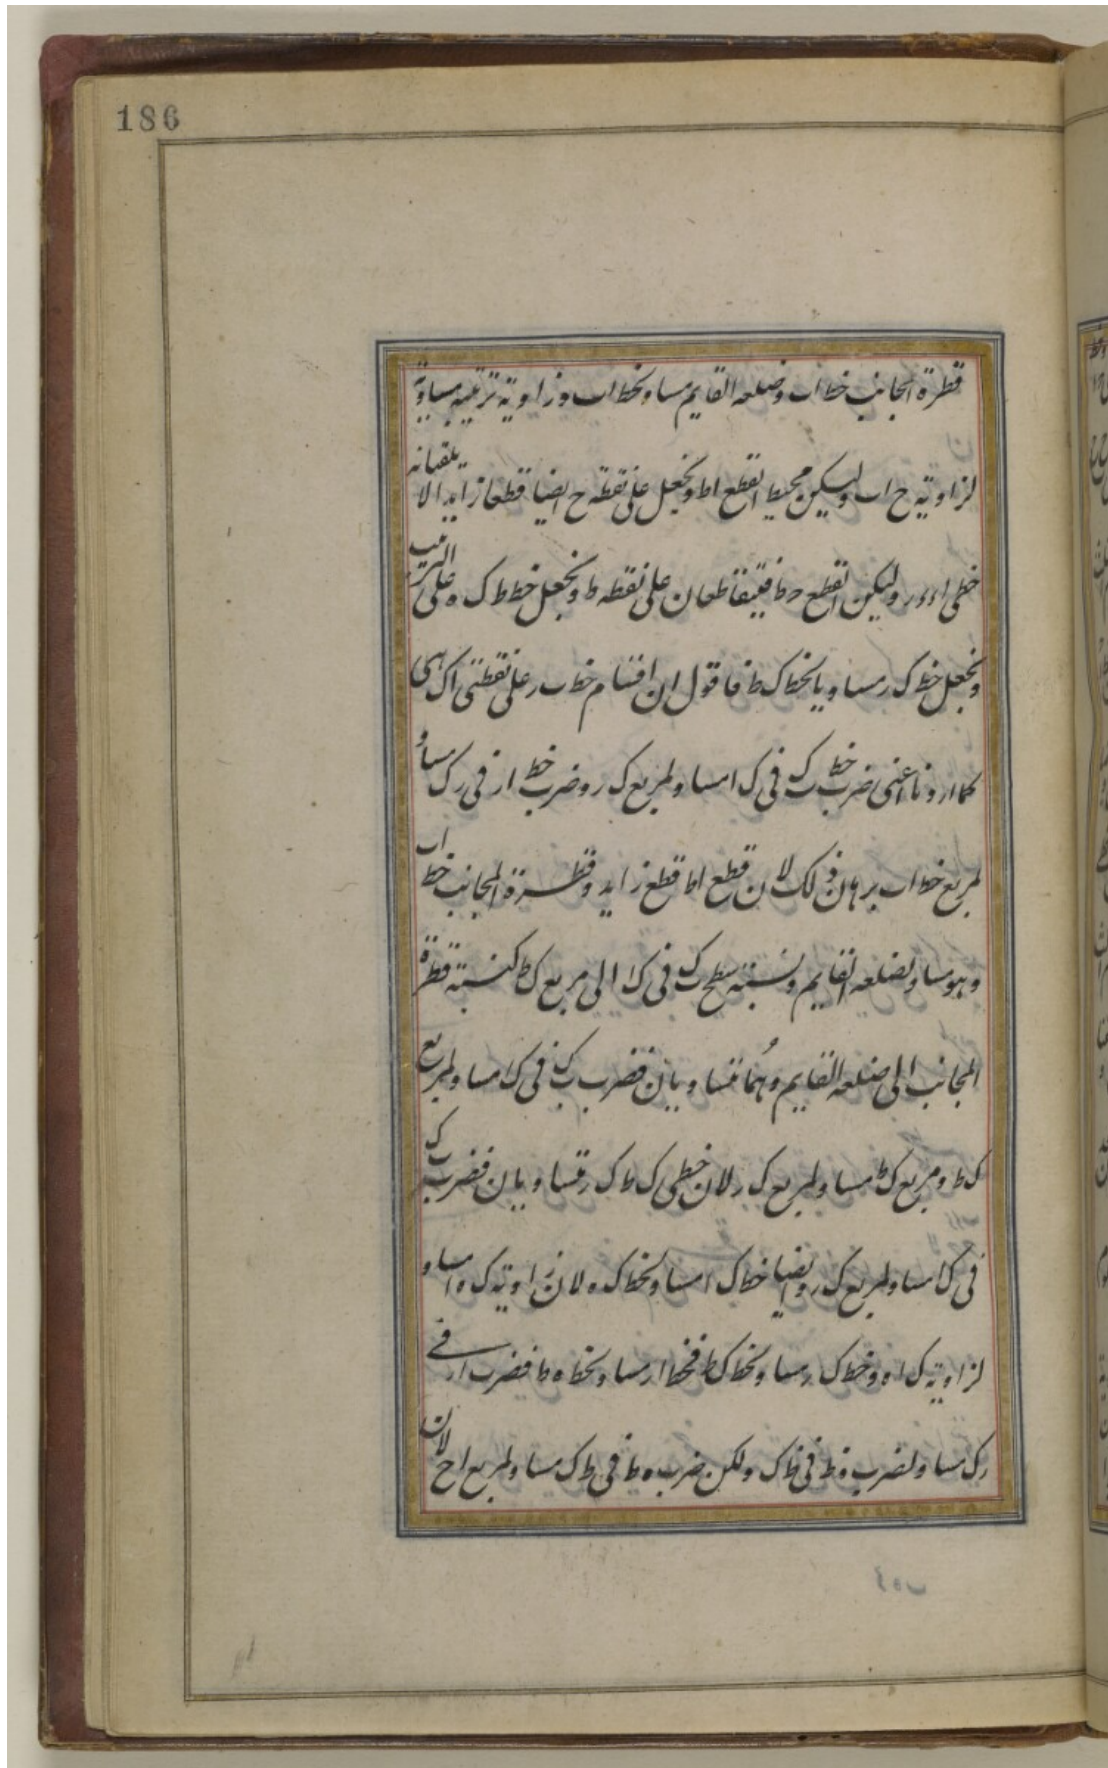 186
قطره المجانب خط اب وضلعه القايم مساو لخط اب وزاوية ترتيبه مساوية
لزاوية ح اب وليكن محيط القطع اط ونجعل على نقطه ح ايضا قطعا زايدا لا يلقيانه
خطى اد در وليكن القطع ح ط فيتقاطعان على نقطه ط ونجعل خط ط ك ه على الترتيب
ونجعل خط ك ر مساويا لخط ك ط فاقول ان اقسام خط ب ر على نقطتى ا ك هى
كما اردنا اعنى ضرب خط ب ك فى ك ا مساو لمربع ك ر وضرب خط ار فى رك مساو
لمربع خط اب برهان ذلك لان قطع اط قطع زايد وقطره المجانب خط اب
وهو مساو لضلعه القايم ونسبة سطح ب ك فى ك ا الى مربع ك ط كنسبة قطره
المجانب الى ضلعه القايم وهما متساويان فضرب ب ك فى ك ا مساو لمربع
ك ط ومربع ك ط مساو لمربع ك ر لان خطى ك ط ك ر متساويان فضرب ب ك
فى ك ا مساو لمربع ك ر وايضا خط ك ا مساو لخط ك ه لان زاوية ك ه ا مساو
لزاوية ك ا ه وخط ك ر مساو لخط ك ط فخط ار مساو لخط ه ط فضرب ار فى
رك مساو لضرب ه ط فى ط ك ولكن ضرب ه ط فى ط ك مساو لمربع اح لان